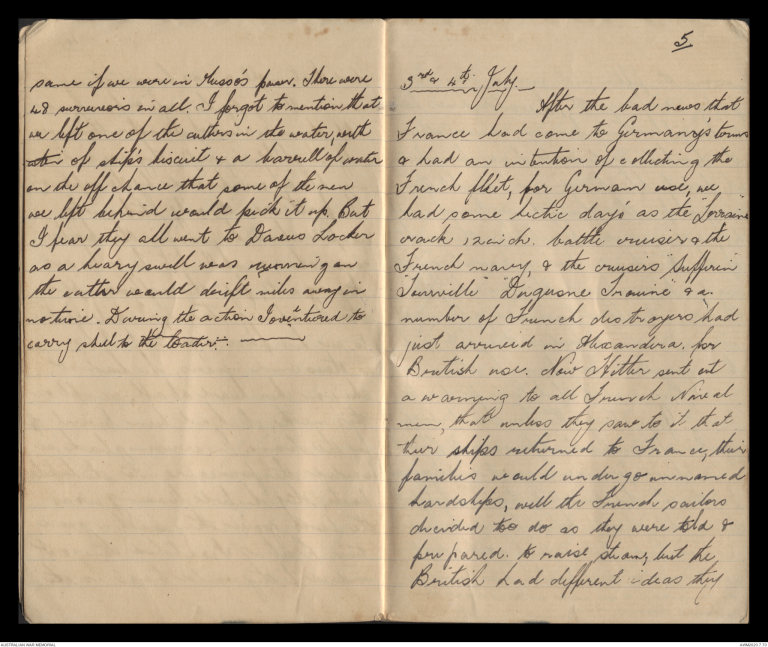 same if we were in Musso's power. There were
48 survivors in all. I forgot to mention that
we left one of the cutters in the water, with
of ship's biscuit & a barrell of water
on the off chance that some of the men
we left behind would pick it up. But
I fear they all went to Davus Locker
as a heavy swell was running an
the cutter would drift miles away in
no time. During the action I ventured to
carry shell to the loader.
5
3rd & 4th July.
After the bad news that
France had come to Germany's terms
& had an intention of collecting the
French fleet, for German use, we
had some hectic days as the "Lorraine
crack 12 inch. battle cruiser & the
French navy, & the cruisers "Sufferin"
"Tourville" Duquesne & a
number of French distroyers had
just arrived in Alexandira. for
British use. Now Hitler sent out
a warning to all French Naval
men, that unless they saw to it that
their ships returned to France, their
families would undergo unnamed
hardships, well the French sailors
decided too do as they were told &
prepared. to raise steam, but the
British had different ideas they
AUSTRALIAN WAR MEMORIAL